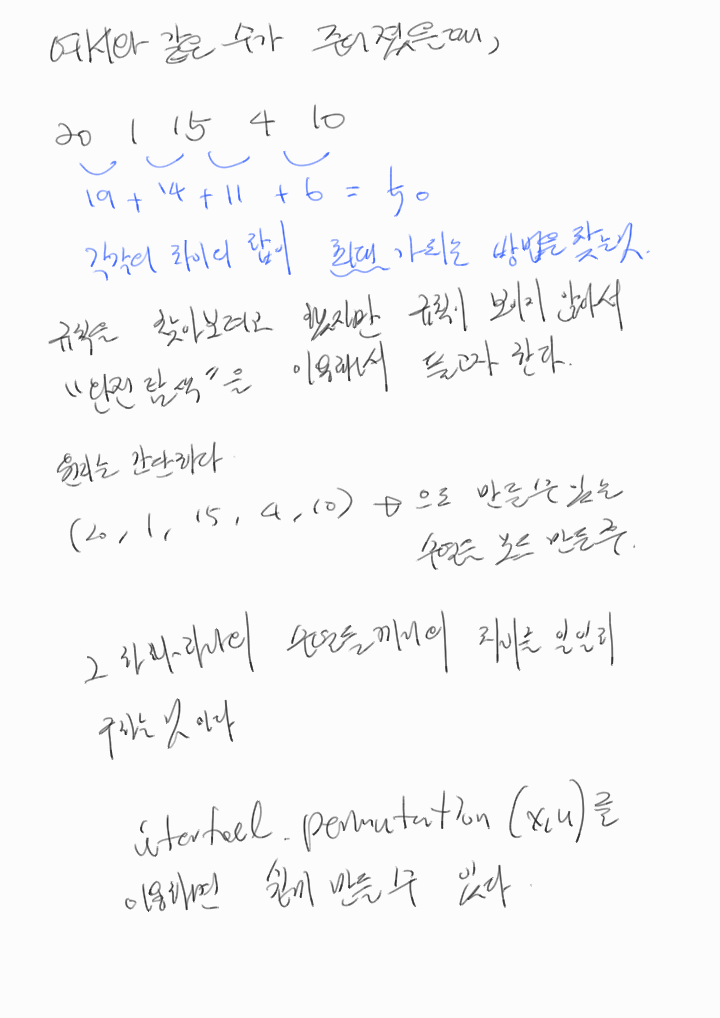 예시와 같은 수가 주어졌을때,
20 1 15 4 10
19 + 14 + 11 + 6 = 50
각각의 차이의 합이 최대 가 되는 방법을 찾는것.
규칙을 찾아보려고 했지만 규칙이 보이지 않아서
"완전 탐색"을 이용해서 풀고자 한다.
원리는 간단하다
(20, 1, 15, 4, 10) → 으로 만들수 있는
수열을 모두 만든후.
그 하나하나의 수열들끼리의 차이를 일일히
구하는 것 이다
itertool.permutation (x, u)를
이용하면 쉽게 만들 수 있다.